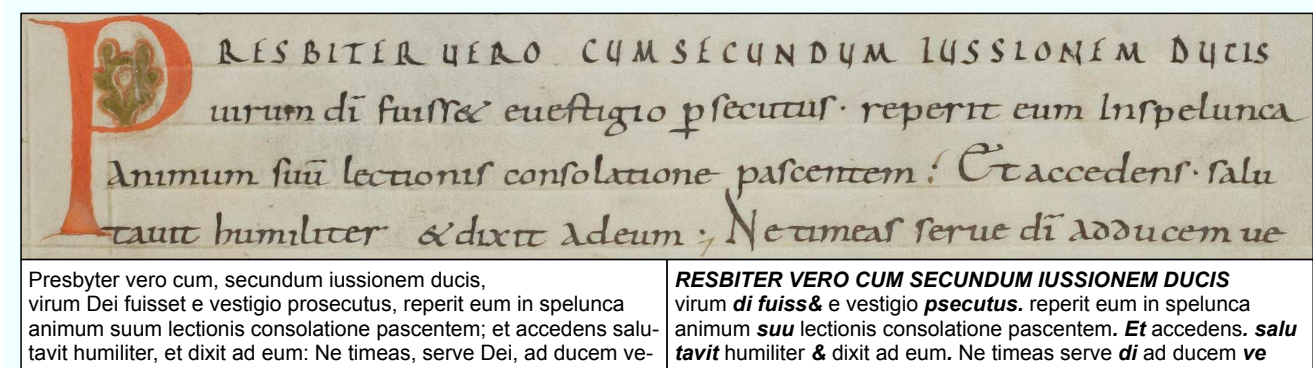 PRESBITER UERO CUM SECUNDUM IUSSIONEM DUCIS
uirum dī fuiss& euestigio ꝑsecutus · reperit eum Inspelunca
Animum suū lectionis consolatione pascentem : Et accedens · salu
tauit humiliter & dixit Adeum ; Ne timeas serue dī adducem ue
Presbyter vero cum, secundum iussionem ducis,
virum Dei fuisset e vestigio prosecutus, reperit eum in spelunca
animum suum lectionis consolatione pascentem; et accedens salu-
tavit humiliter, et dixit ad eum: Ne timeas, serve Dei, ad ducem ve-
RESBITER VERO CUM SECUNDUM IUSSIONEM DUCIS
virum di fuiss& e vestigio psecutus. reperit eum in spelunca
animum suu lectionis consolatione pascentem. Et accedens. salu
tavit humiliter & dixit ad eum. Ne timeas serve di ad ducem ve